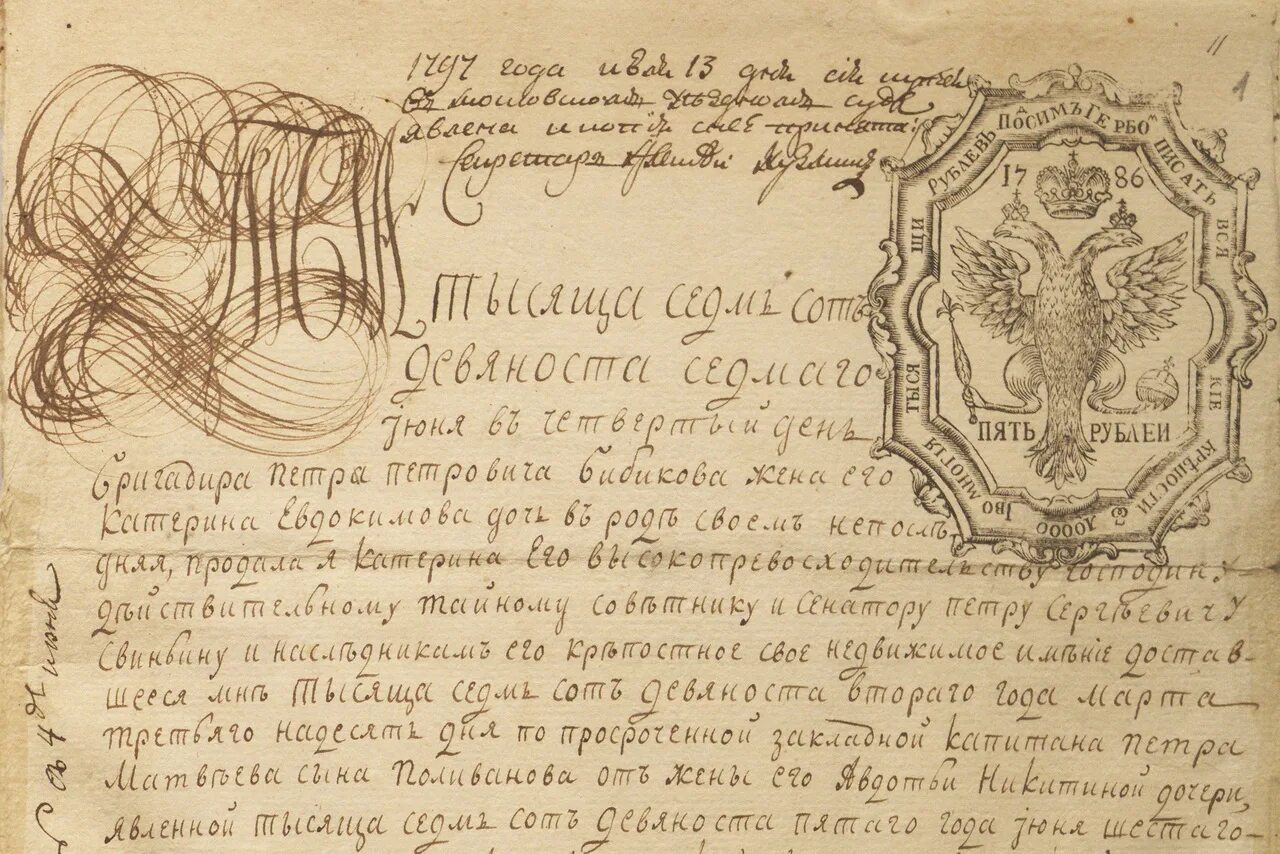 11
1
1797 года июля 13 дня сей
въ московскомъ уѣздномъ суде
явлена и
Секретарь
ПОСИМЪ ГЕРБОМ ПИСАТЬ ВСЯ КІЕ КРѢПОСТИ
ЩИ РУБЛЕВЪ
ТЫСЯ
1786
ПЯТЬ РУБЛЕИ
Лѣта
тысяща седмь сотъ
девяноста седмаго
июня въ четвертый день
бригадира петра петровича бибикова жена его
катерина Евдокимова дочь въ родѣ своемъ непослѣ
дняя, продала я катерина Его высокопревосходительству господину
дѣйствительному тайному совѣтнику и сенатору петру сергѣевичу
свиньину и наслѣдникамъ его крѣпостное свое недвижимое имѣніе достав-
шееся мнѣ тысяща седмь сотъ девяноста втораго года марта
третьяго надесять дня по просроченной закладной капитана петра
матвѣева сына поливанова отъ жены его Авдотьи Никитиной дочери,
явленной тысяща седмь сотъ девяноста пятаго года июня шестаго-